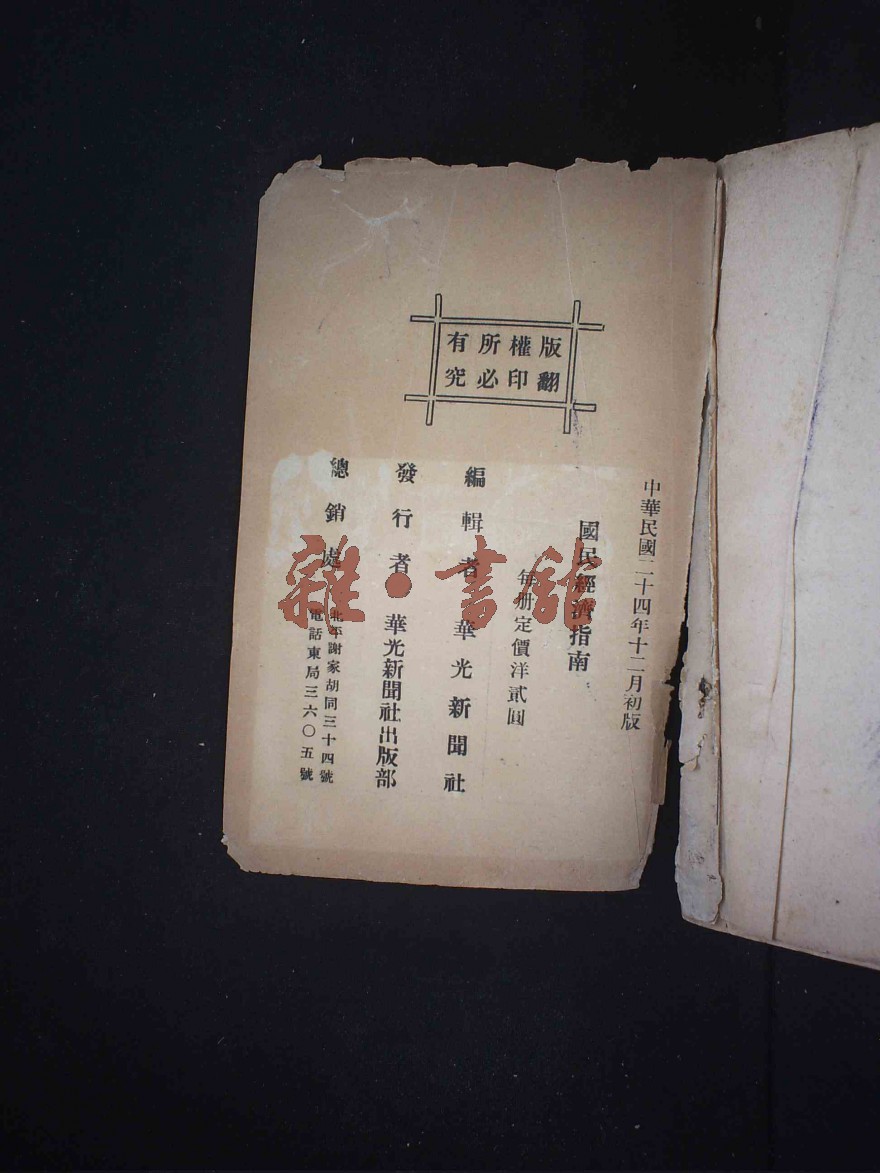 版權所有
翻印必究
中華民國二十四年十二月初版
國民經濟指南
每册定價洋貳圓
編輯者 華光新聞社
發行者 華光新聞社出版部
總銷處 北平謝家胡同三十四號
電話東局三六〇五號
雜·書館